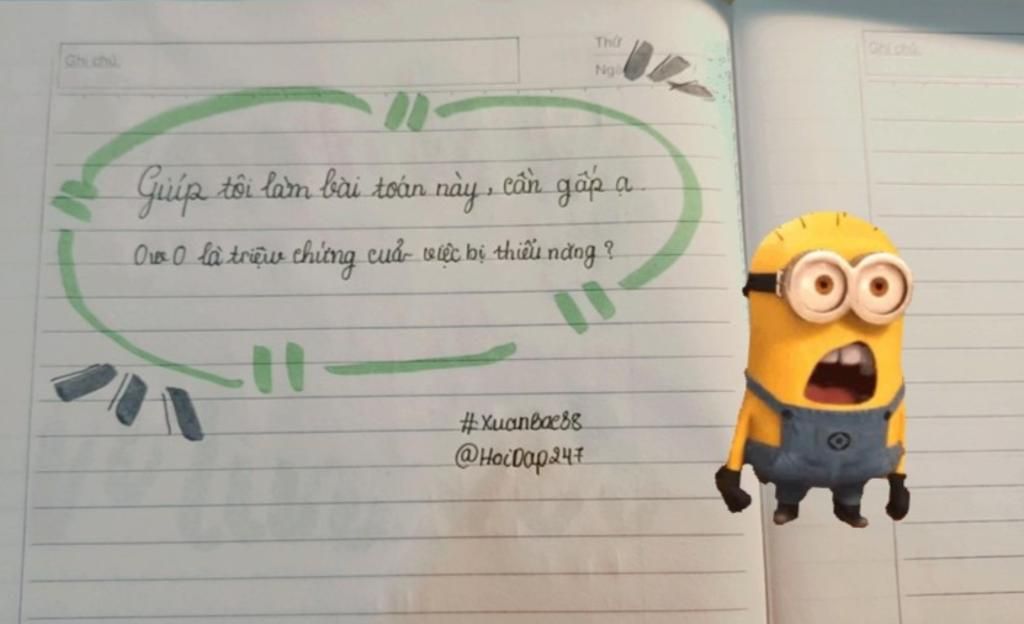 Ghi chú:
Thứ
Ngà
Giúp tôi làm bài toán này, cần gấp ạ.
OwO là triệu chứng cuả việc bị thiểu năng?
#XuanBac88
@HoiDap247
Ghi chú: